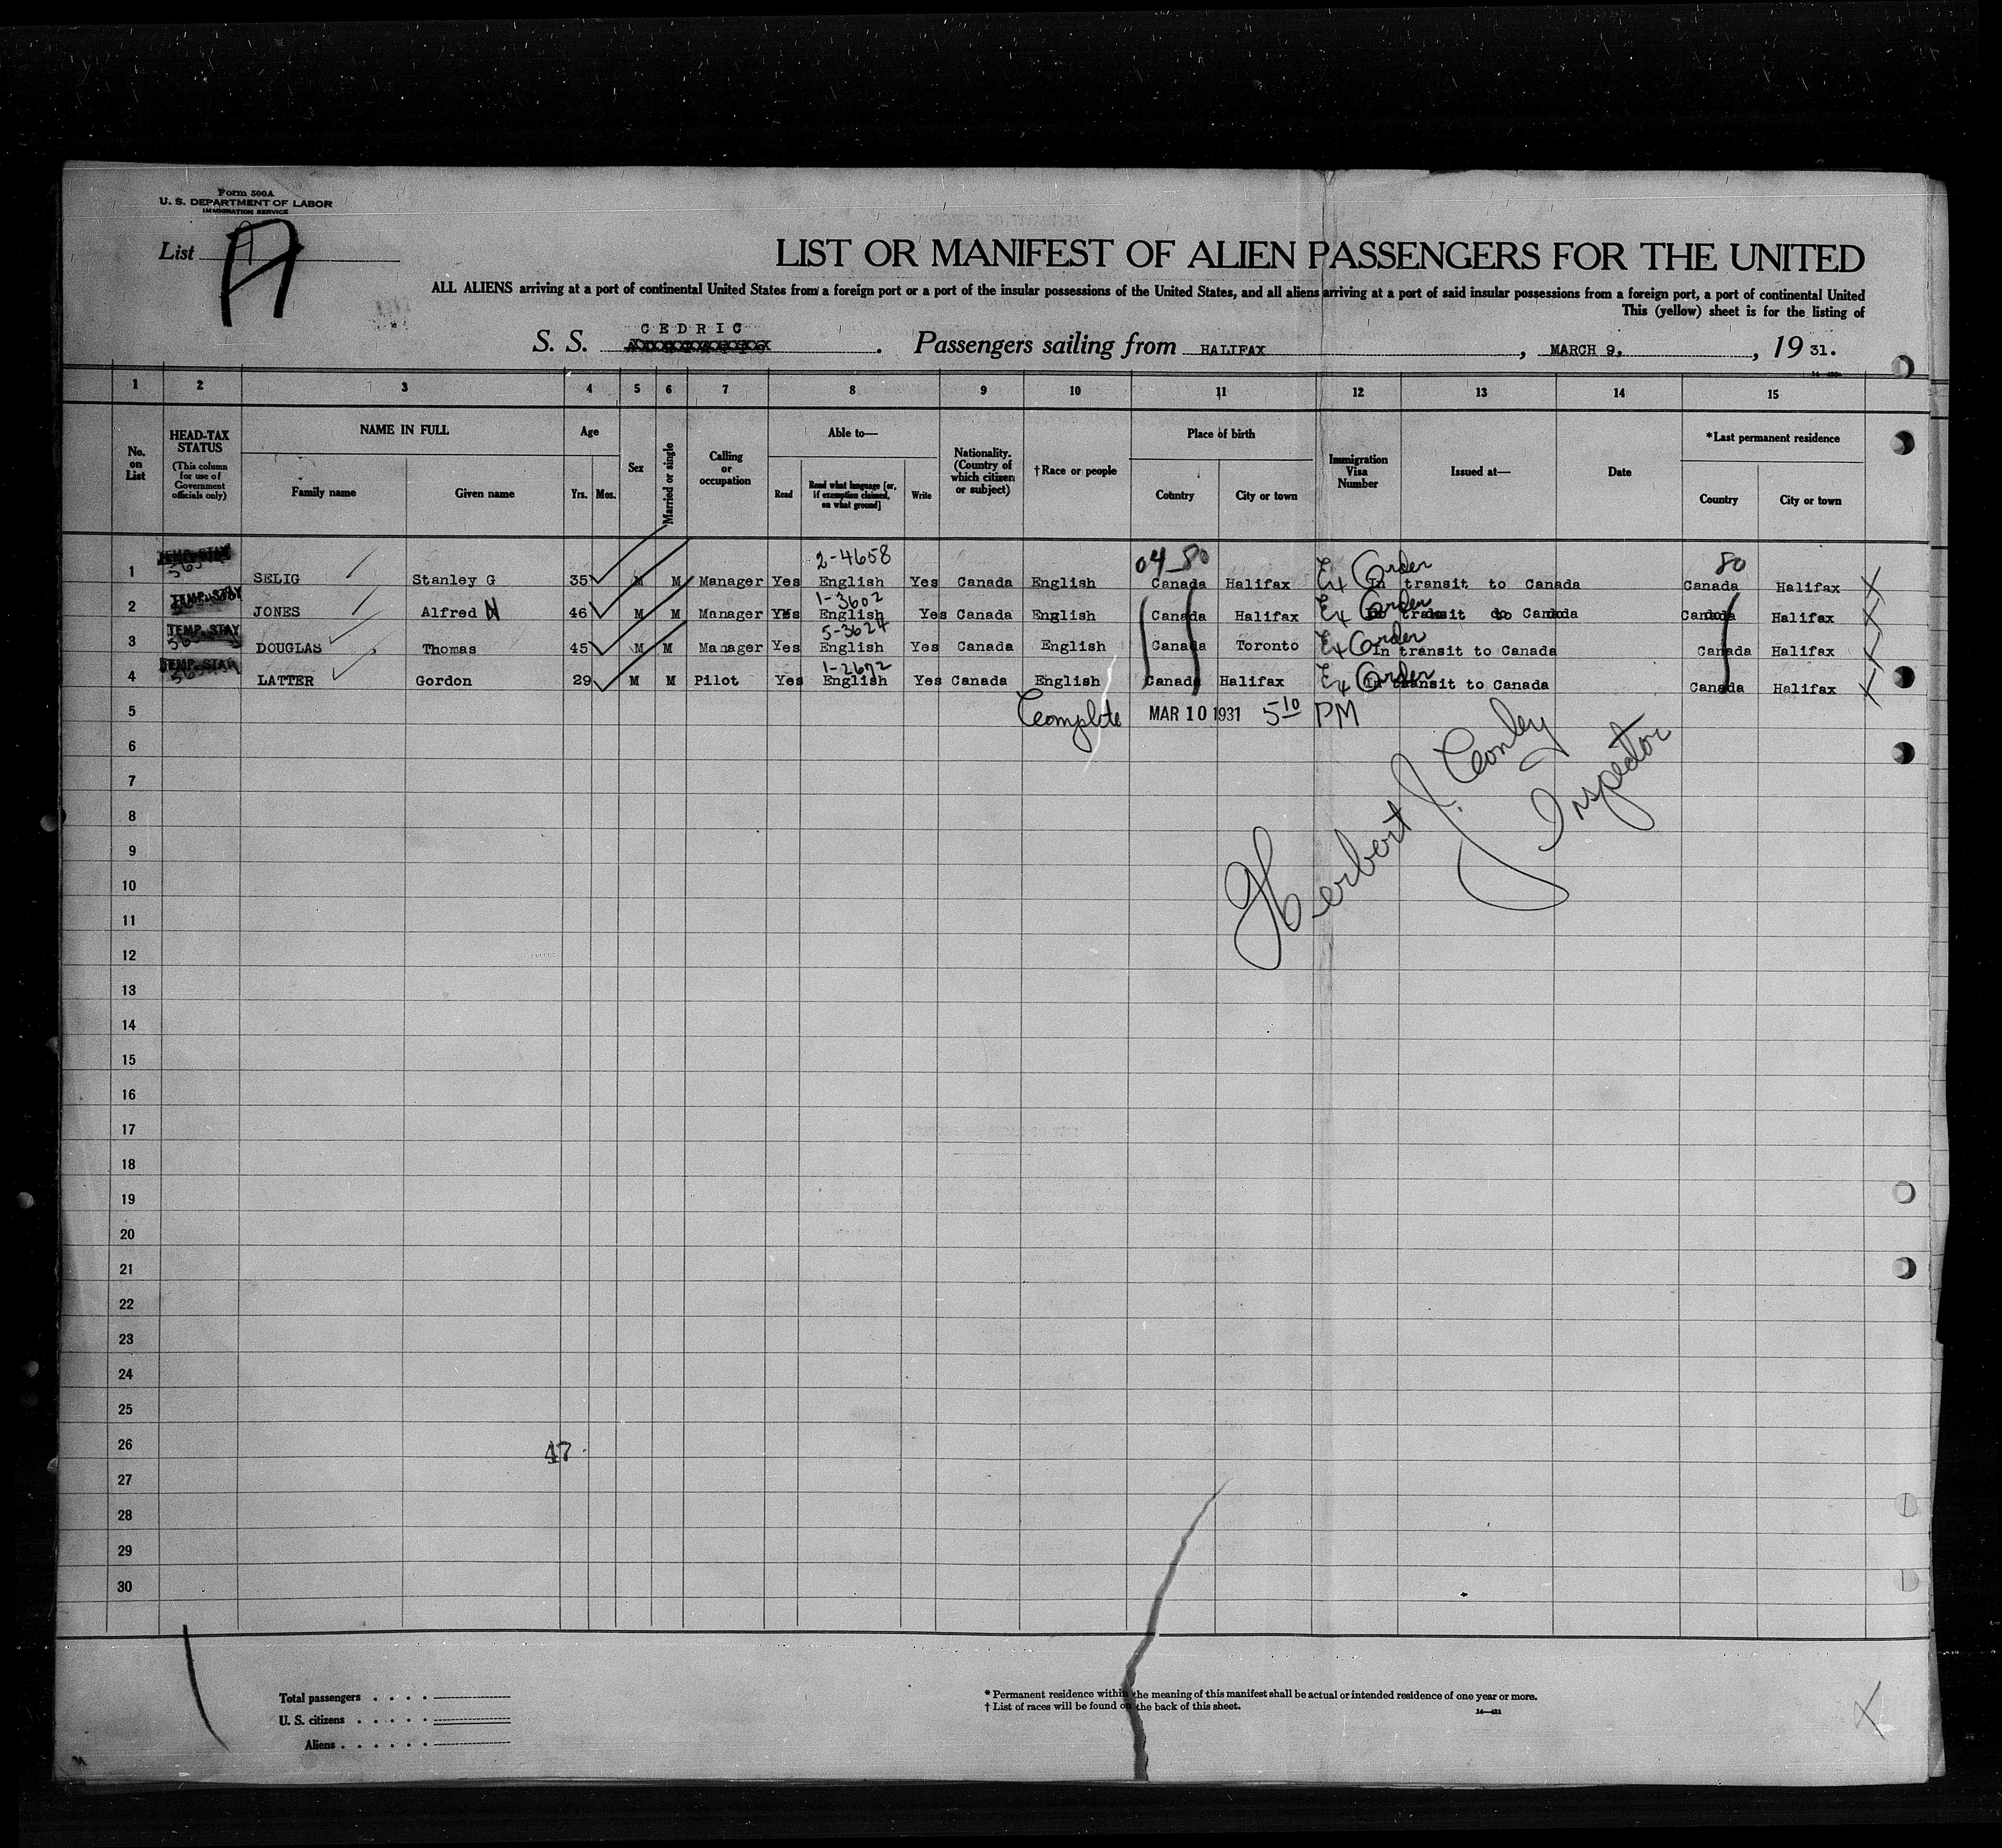 Form 500A
U. S. DEPARTMENT OF LABOR
IMMIGRATION SERVICE
List A
A
LIST OR MANIFEST OF ALIEN PASSENGERS FOR THE UNITED
ALL ALIENS arriving at a port of continental United States from a foreign port or a port of the insular possessions of the United States, and all aliens arriving at a port of said insular possessions from a foreign port, a port of continental United
This (yellow) sheet is for the listing of
S. S. CEDRIC. Passengers sailing from HALIFAX, MARCH 9., 19 31.
1 2 3 4 5 6 7 8 9 10 11 12 13 14 15
No. on List
HEAD-TAX STATUS
(This column for use of Government officials only)
NAME IN FULL
Family name
Given name
Age
Yrs.
Mos.
Sex
Married or single
Calling or occupation
Able to—
Read
Read what language [or, if exemption claimed, on what ground]
Write
Nationality. (Country of which citizen or subject)
†Race or people
Place of birth
Country
City or town
Immigration Visa Number
Issued at—
Date
*Last permanent residence
Country
City or town
2-4658 04 80 80
1 TEMP. STAY SELIG Stanley G 35 M M Manager Yes English Yes Canada English Canada Halifax In transit to Canada Canada Halifax X
1-3602
2 TEMP. STAY JONES Alfred H 46 M M Manager Yes English Yes Canada English Canada Halifax transit Canada Canada Halifax X
5-3624
3 TEMP. STAY DOUGLAS Thomas 45 M M Manager Yes English Yes Canada English Canada Toronto In transit to Canada Canada Halifax X
1-2672
4 TEMP. STAY LATTER Gordon 29 M M Pilot Yes English Yes Canada English Canada Halifax In transit to Canada Canada Halifax X
5 Complete MAR 10 1931 5 10 PM
Herbert J. Conley
Inspector
6
7
8
9
10
11
12
13
14
15
16
17
18
19
20
21
22
23
24
25
26
47
27
28
29
30
Total passengers . . . .
U. S. citizens . . . . .
Aliens . . . . . .
* Permanent residence within the meaning of this manifest shall be actual or intended residence of one year or more.
† List of races will be found on the back of this sheet.
X